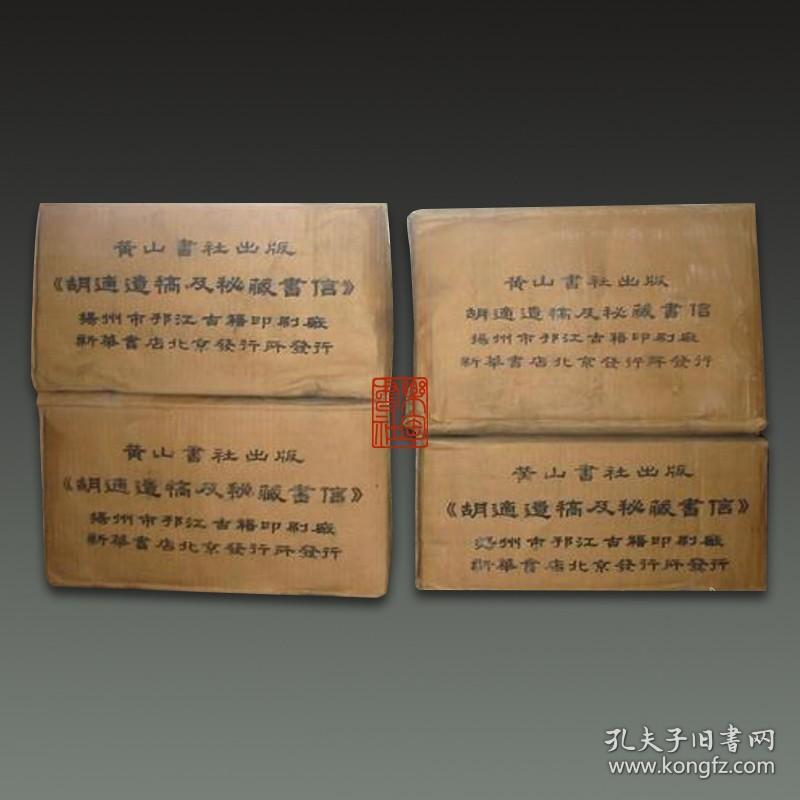 黄山書社出版
《胡適遺稿及秘藏書信》
揚州市邗江古籍印刷廠
新華書店北京發行所發行
黄山書社出版
《胡適遺稿及秘藏書信》
揚州市邗江古籍印刷廠
新華書店北京發行所發行
黄山書社出版
胡適遺稿及秘藏書信
揚州市邗江古籍印刷廠
新華書店北京發行所發行
黄山書社出版
《胡適遺稿及秘藏書信》
揚州市邗江古籍印刷廠
新華書店北京發行所發行
孔夫子旧书网
www.kongfz.com